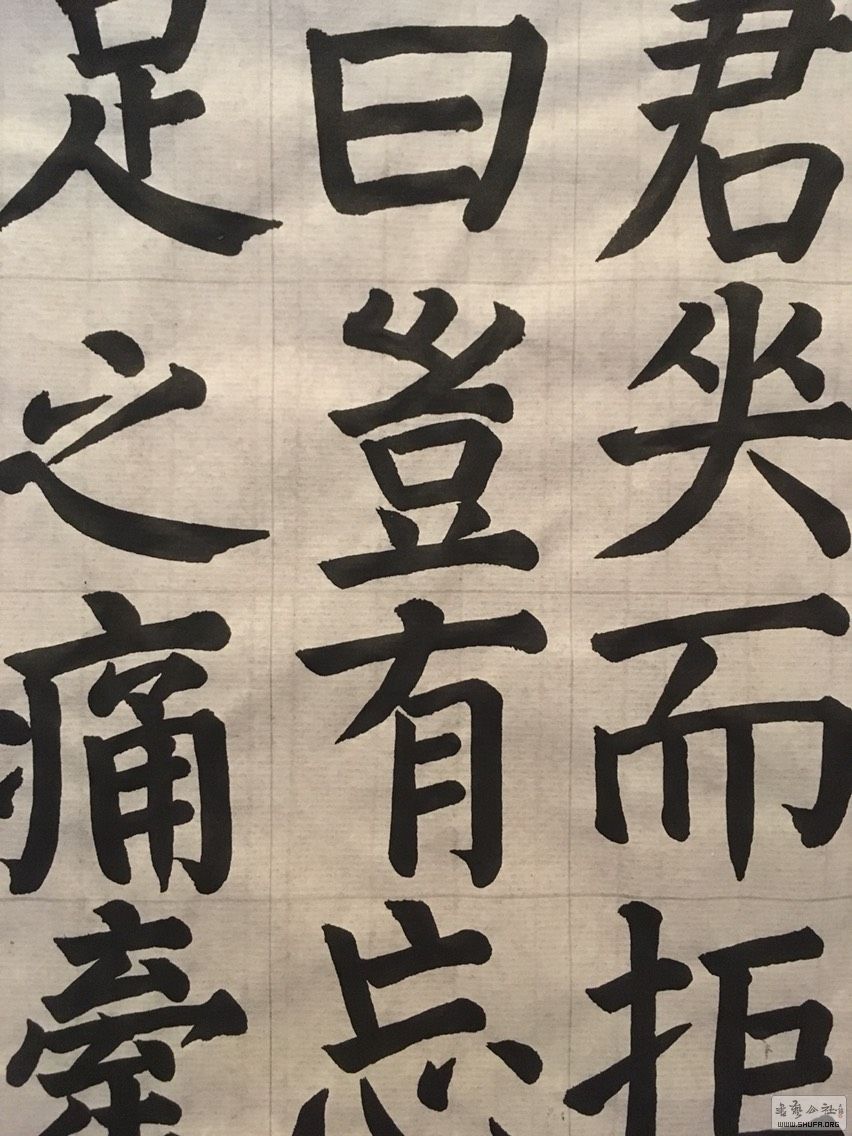 君而拒
曰豈有忘
足之痛牽
書藝公社
WWW.SHUFA.ORG